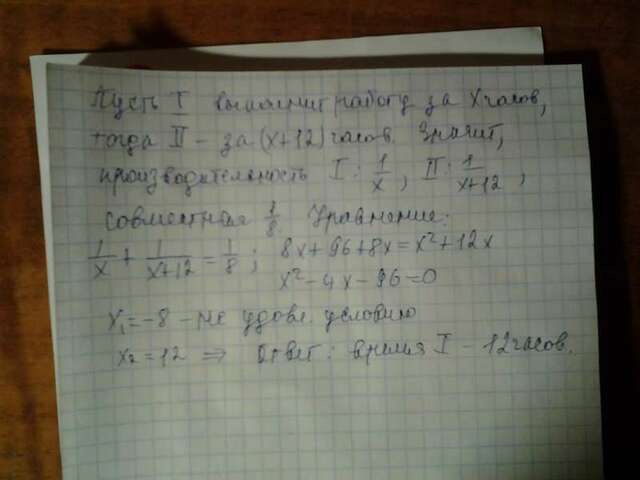 Пусть I выполнит работу за x часов,
тогда II – за (x+12) часов. Значит,
производительность I: 1/x, II: 1/(x+12),
совместная 1/8. Уравнение:
1/x + 1/(x+12) = 1/8; 8x+96+8x=x²+12x
x²-4x-96=0
x₁=-8 – не удовл. условию
x₂=12 ⇒ Ответ: время I – 12 часов.